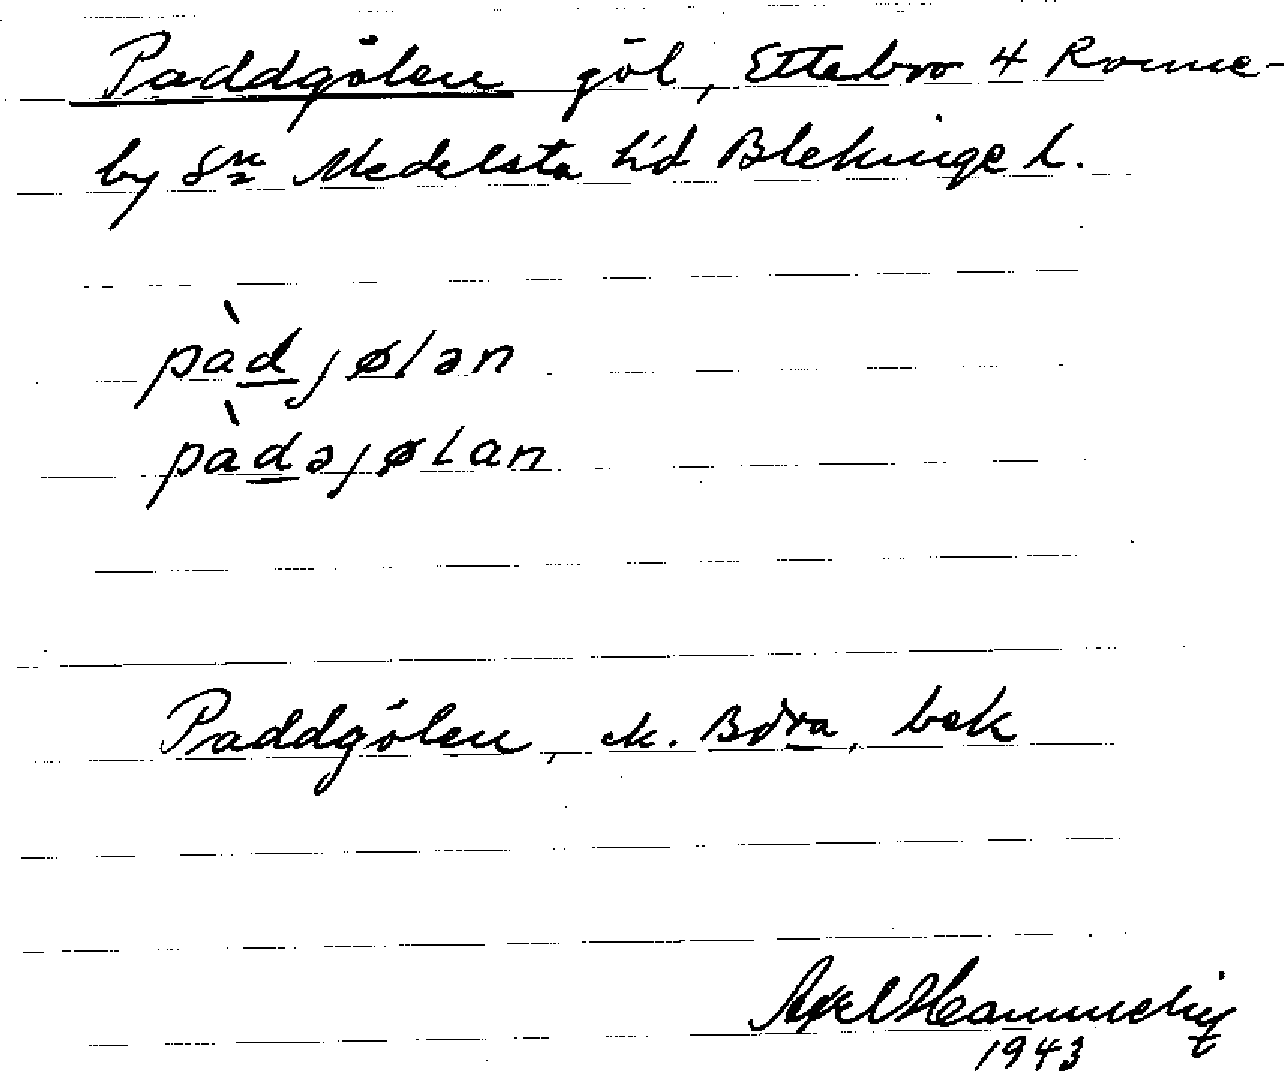 Paddgölen göl, Ettebro 4 Ronne-
by sn Medelsta hd Blekinge l.
pàdjølən
pàdəjølan
Paddgölen, ek. Bdra, bek
Axel
1943